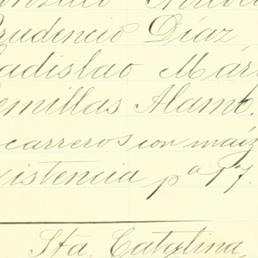 Prudencio Díaz
Ladislao Már
Semillas Alamb.
carreros con maíz
xistencia pa 17.
Sta. Catalina,